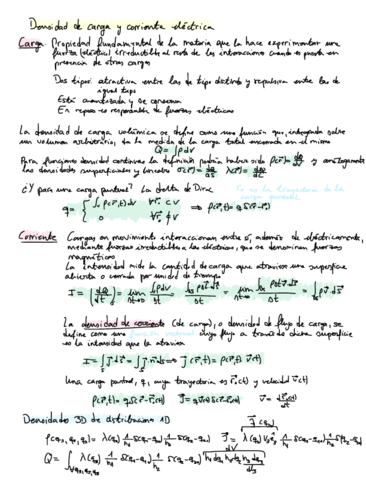 Densidad de carga y corriente eléctrica
Carga Propiedad fundamental de la materia que la hace experimentar una
fuerza (eléctrica) irreductible al resto de las interacciones cuando es puesta en
presencia de otras cargas
Dos tipos: atractiva entre las de tipo distinto y repulsiva entre las de
igual tipo
Está cuantizada y se conserva
En reposo es responsable de fuerzas eléctricas
La densidad de carga volúmica se define como una función que, integrada sobre
un volumen arbitrario, da la medida de la carga total encerrada en el mismo
Q = ∫ρdV
Para funciones densidad continuas la definición podría haber sido ρ(r⃗) = dQ/dV y análogamente
las densidades superficiales y lineales σ(r⃗) = dQ/dS λ(r⃗) = dQ/dL
¿Y para una carga puntual? La delta de Dirac
Co es la trayectoria de la
carga puntual
q = { ∫ᵥ ρ(r⃗,t) dV ∀r⃗₀ ⊂ V
0 ∀r⃗₀ ⊄ V ⟹ ρ(r⃗,t) = qδ(r⃗-r⃗₀)
Corriente Cargas en movimiento interaccionan entre sí, además de eléctricamente,
mediante fuerzas irreductibles a las eléctricas, que se denominan fuerzas
magnéticas
La intensidad mide la cantidad de carga que atraviesa una superficie
abierta o cerrada por unidad de tiempo
La densidad de corriente (de carga), o densidad de flujo de carga, se
define como una función vectorial cuyo flujo a través de dicha superficie
es la intensidad que la atraviesa
I = ∫ₛ J⃗ dS⃗ = ∫ₛ J⃗·n⃗ ds ⟹ J⃗(r⃗,t) = ρ(r⃗,t) v⃗(t)
Una carga puntual, q, cuya trayectoria es r⃗₀(t) y velocidad v⃗(t)
ρ(r⃗,t) = qδ(r⃗-r⃗₀(t)) J⃗ = q v⃗(t) δ(r⃗-r⃗₀(t)) v⃗ = dr⃗₀(t)/dt
Densidades 3D de distribución 1D